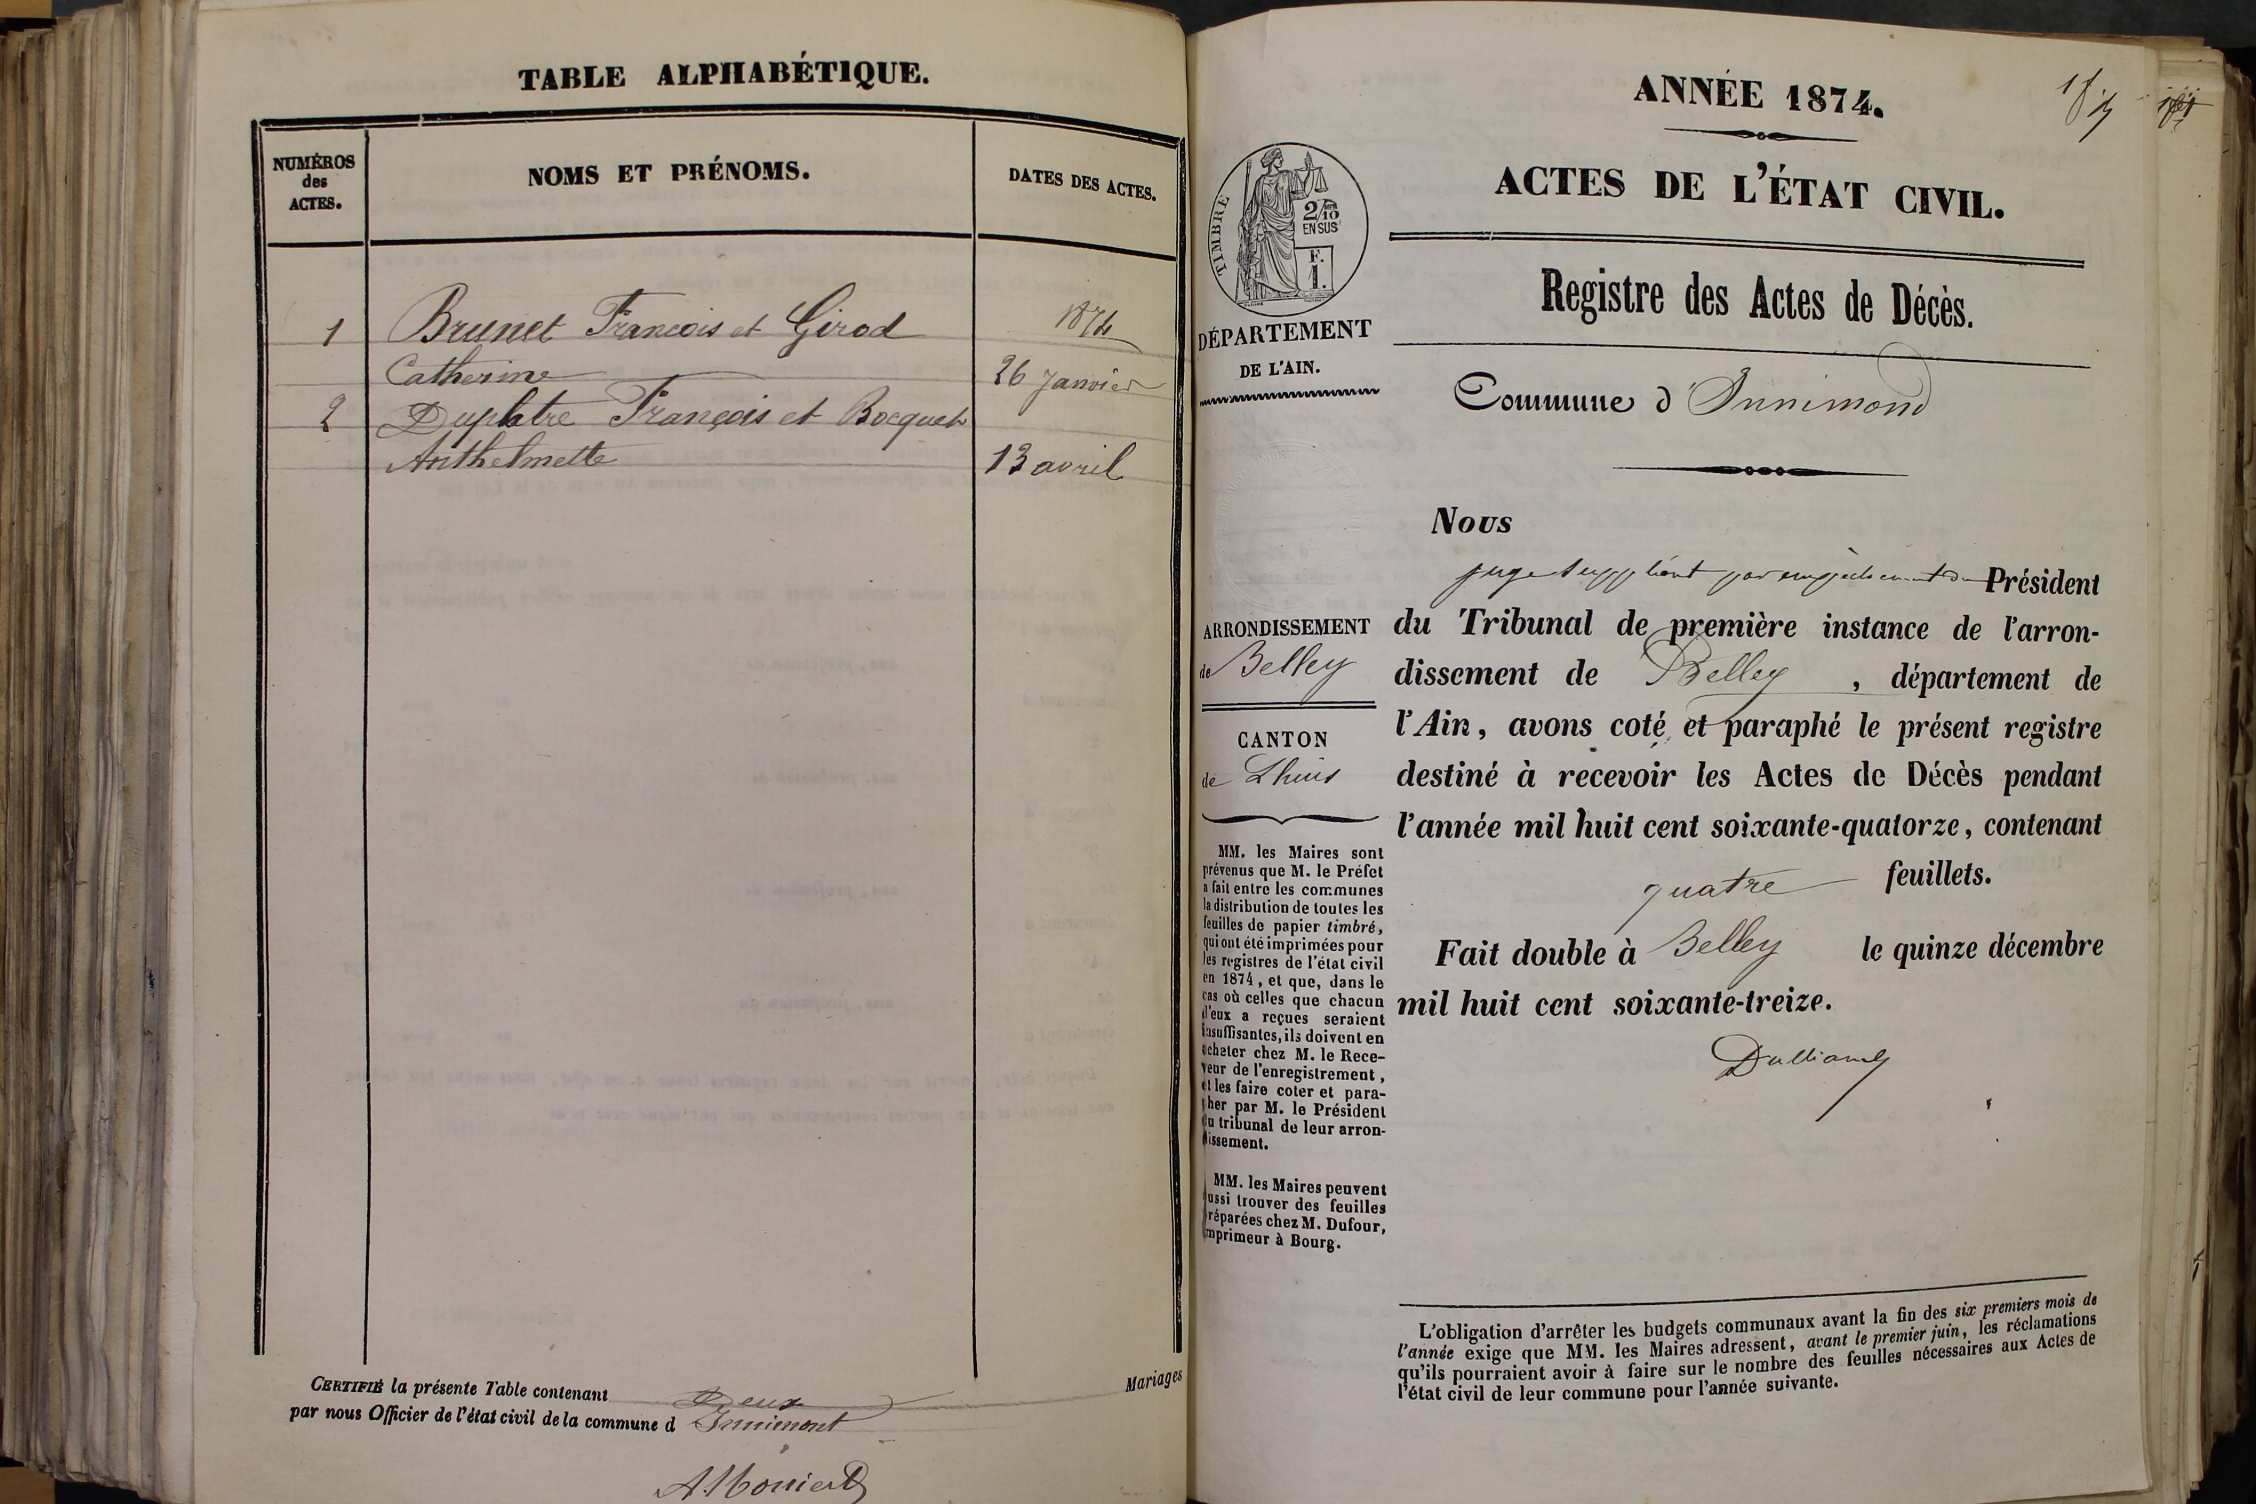 TABLE ALPHABÉTIQUE.
NUMÉROS
des
ACTES.
NOMS ET PRÉNOMS.
DATES DES ACTES.
1 Brunet Francois et Girod 1874
Catherine 26 Janvier
2 Duplatre François et Bocquet
Anthelmette 13 avril
CERTIFIÉ la présente Table contenant Deux Mariages
par nous Officier de l'état civil de la commune d Innimont
ANNÉE 1874.
ACTES DE L'ÉTAT CIVIL.
TIMBRE
2/10
EN SUS
F.
1.
DÉPARTEMENT
DE L'AIN.
Registre des Actes de Décès.
Commune d'Innimond
ARRONDISSEMENT
de Belley
CANTON
de Lhuis
MM. les Maires sont
prévenus que M. le Préfet
a fait entre les communes
la distribution de toutes les
feuilles de papier timbré,
qui ont été imprimées pour
les registres de l'état civil
en 1874, et que, dans le
cas où celles que chacun
d'eux a reçues seraient
insuffisantes, ils doivent en
acheter chez M. le Rece-
veur de l'enregistrement,
et les faire coter et para-
pher par M. le Président
du tribunal de leur arron-
dissement.
MM. les Maires peuvent
aussi trouver des feuilles
préparées chez M. Dufour,
imprimeur à Bourg.
Nous
juge suppléant par empêchement du Président
du Tribunal de première instance de l'arron-
dissement de Belley, département de
l'Ain, avons coté et paraphé le présent registre
destiné à recevoir les Actes de Décès pendant
l'année mil huit cent soixante-quatorze, contenant
quatre feuillets.
Fait double à Belley le quinze décembre
mil huit cent soixante-treize.
L'obligation d'arrêter les budgets communaux avant la fin des six premiers mois de
l'année exige que MM. les Maires adressent, avant le premier juin, les réclamations
qu'ils pourraient avoir à faire sur le nombre des feuilles nécessaires aux Actes de
l'état civil de leur commune pour l'année suivante.